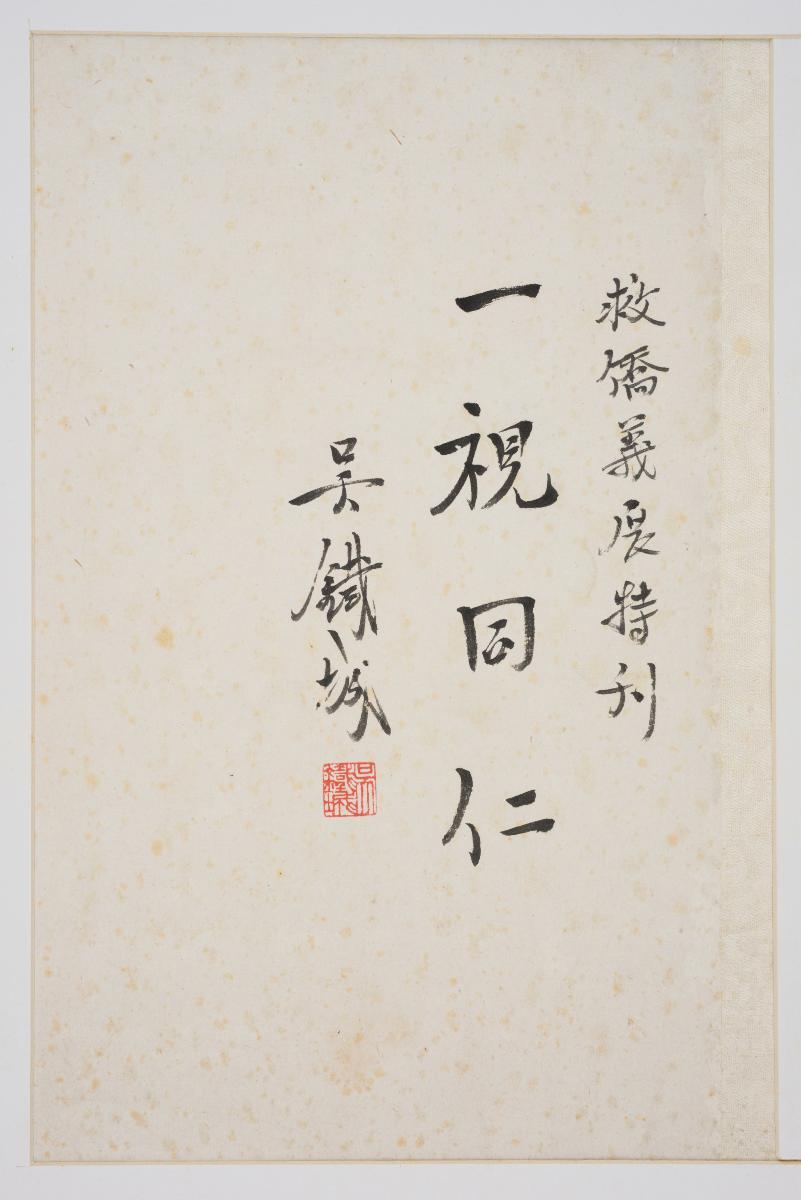 救僑義展特刊
一視同仁
吳鐵城